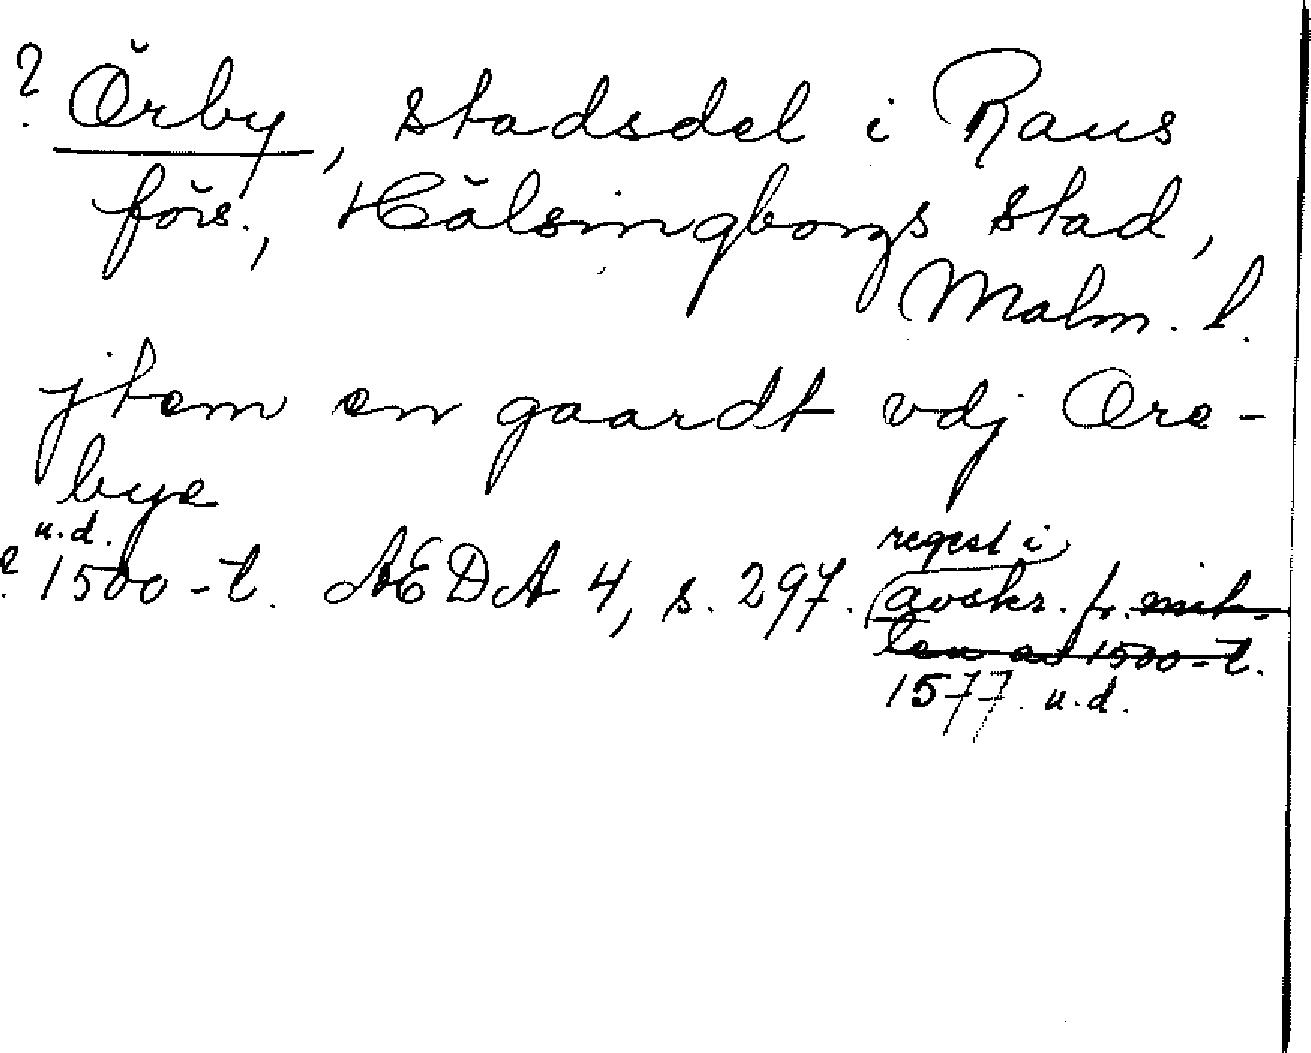 ? Örby, stadsdel i Raus
förs., Hälsingborgs stad,
Malm. l.
jtem en gaardt vdj Øre-
bye
u.d.
? 1500-t. ÆDA 4, s. 297. regest i
avskr. fr. mit-
ten av 1500-t.
1577. u.d.